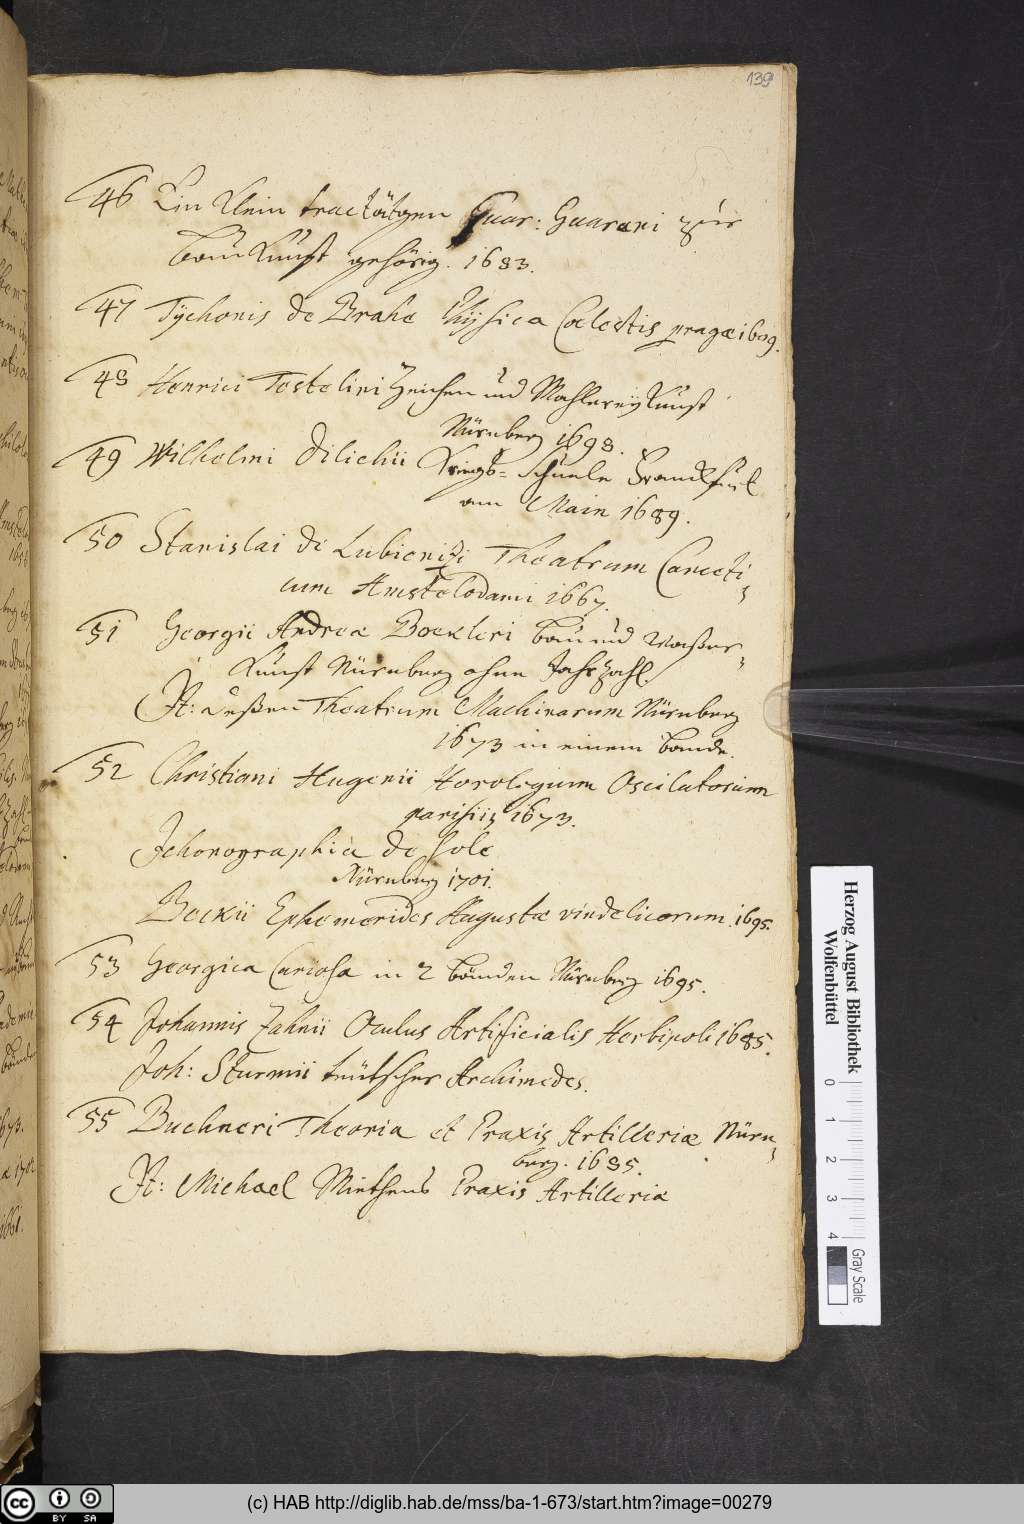 139
46 Ein Klein tractätgen Guar: Guarani zur
Bau Kunst gehörig. 1683.
47 Tychonis de Brahe Phÿsica Coelestis pragæ 1609.
48 Henrici Testelini Zeichen und Mahlereÿ Kunst
Nürnberg 1698.
49 Wilhelmi Dilichii Kriegs= Schuele Franckfurt
am Main 1689.
50 Stanislai di Lubienizi Theatrum Cometi=
cum Amstelodami 1667.
51 Georgii Andreæ Boekleri Bau und Waßer=
Kunst Nürnberg ohne Jahrzahl.
It: deßen Theatrum Machinarum Nürnberg
1673 in einem Bande.
52 Christiani Hugenii Horologium Oscilatorium
parisiis 1673.
Ichonographia de Sole
Nürnberg 1701.
Beckii Ephemerides Augustæ vindelicorum. 1695.
53 Georgica Curiosa in 2 Bänden Nürnberg 1695.
54 Johannis Zahnii Oculus Artificialis Herbipoli 1685.
Joh: Sturmii teütscher Archimedes.
55 Buchneri Theoria et Praxis Artilleriæ Nürn=
berg. 1685.
It: Michael Miethens Praxis Artilleria
Herzog August Bibliothek
Wolfenbüttel
0 1 2 3 4
Gray Scale
(c) HAB http://diglib.hab.de/mss/ba-1-673/start.htm?image=00279
cc BY SA